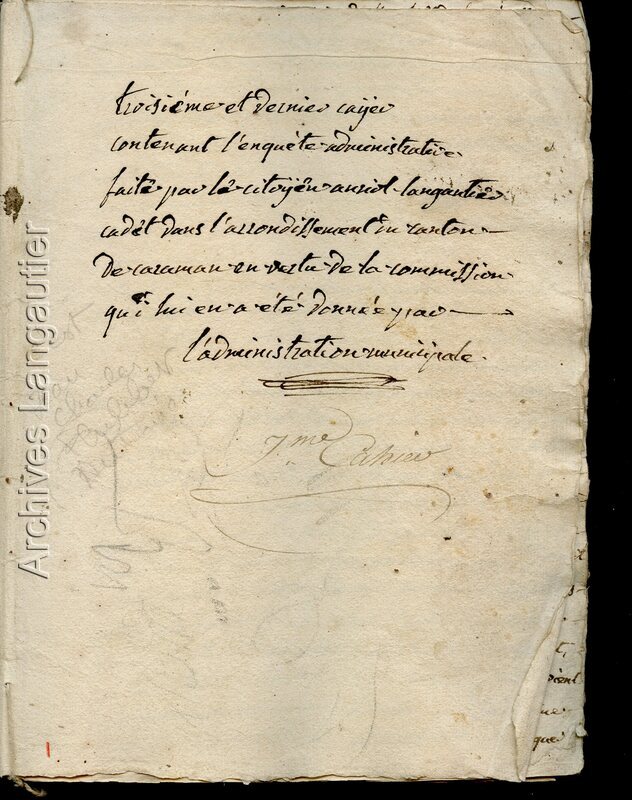 troisiéme et dernier cayer
contenant l'enquéte administrative
faite par le citoyen auriol langautier
cadét dans l'arrondissement du canton
de caraman en vertu de la commission
qui lui en a été donnée par
l'administration municipale.
3.me Cahier
Archives Langautier